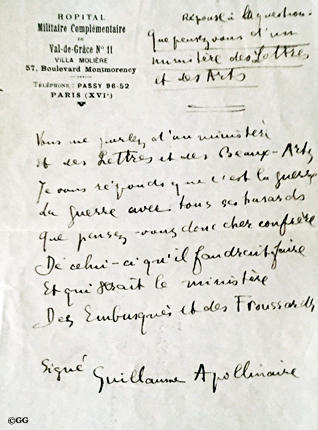 HOPITAL
Militaire Complémentaire
DU
Val-de-Grâce N° 11
VILLA MOLIÈRE
57, Boulevard Montmorency
TÉLÉPHONE : PASSY 96-52
PARIS (XVIe)
Réponse à la question :
Que pensez vous d'un
ministère des Lettres
et des Arts
Vous me parlez d'un ministère
Et des Lettres et des Beaux-Arts
Je vous réponds que c'est la guerre
La guerre avec tous ses hasards
Que pensez-vous donc cher confrère
De celui-ci qu'il faudrait faire
Et qui serait le ministère
Des Embusqués et des Froussards
Signé Guillaume Apollinaire
©GG